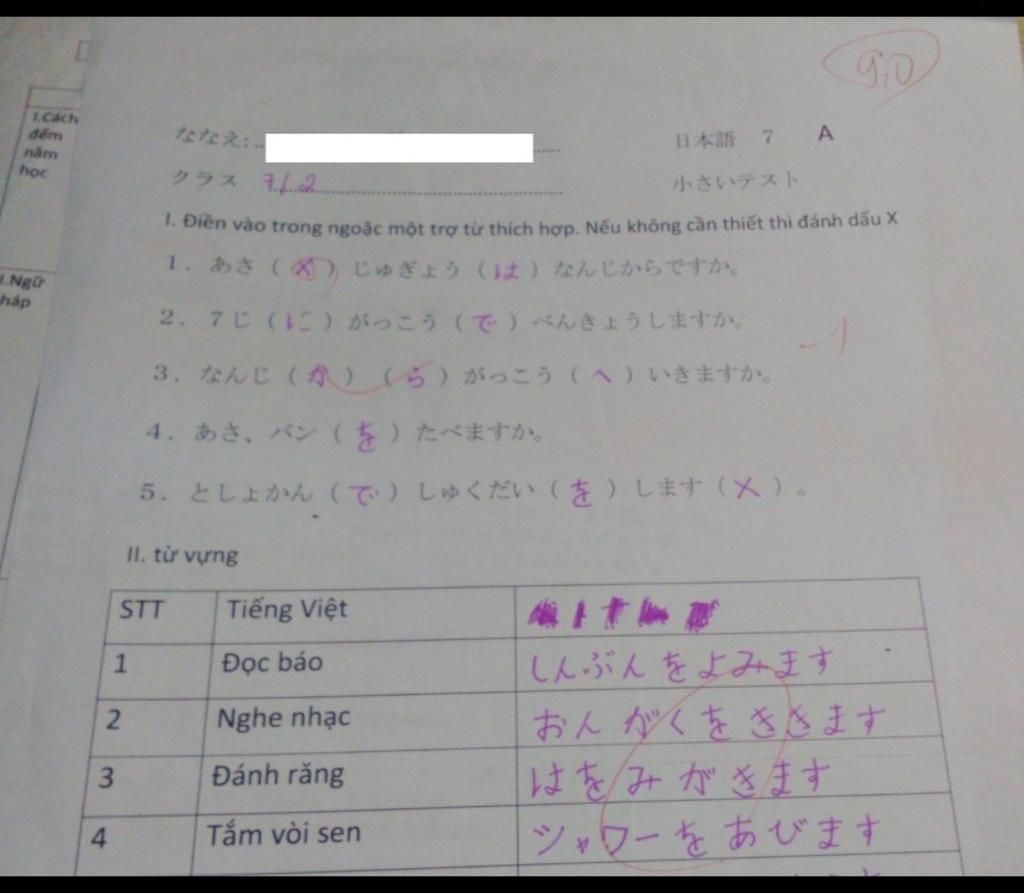 9,0
I.Cách
đếm
năm
học
I.Ngữ
háp
ななえ:
日本語 7 A
クラス 7/2
小さいテスト
I. Điền vào trong ngoặc một trợ từ thích hợp. Nếu không cần thiết thì đánh dấu X
1. あさ ( X ) じゅぎょう ( は ) なんじからですか。
2. 7じ ( に ) がっこう ( で ) べんきょうしますか。
-1
3. なんじ ( か ) ( ら ) がっこう ( へ ) いきますか。
4. あさ、パン ( を ) たべますか。
5. としょかん ( で ) しゅくだい ( を ) します ( X ) 。
II. từ vựng
STT Tiếng Việt
1 Đọc báo しんぶんをよみます
2 Nghe nhạc おんがくをききます
3 Đánh răng はをみがきます
4 Tắm vòi sen シャワーをあびます